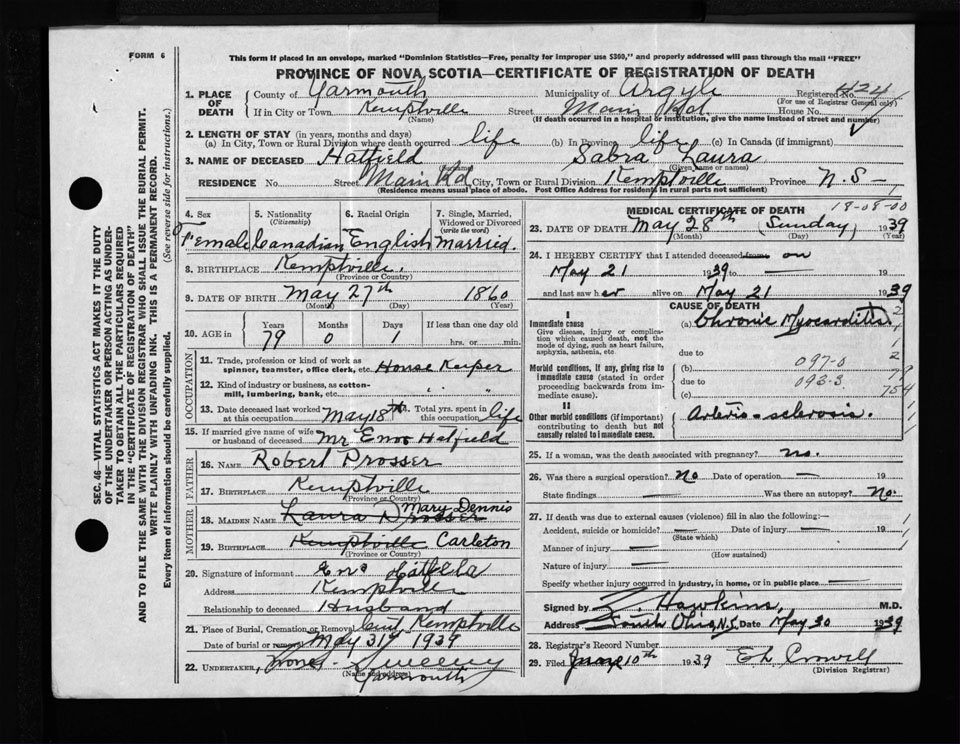 FORM 6
This form if placed in an envelope, marked "Dominion Statistics—Free, penalty for improper use $300," and properly addressed will pass through the mail "FREE"
PROVINCE OF NOVA SCOTIA—CERTIFICATE OF REGISTRATION OF DEATH
SEC. 46—VITAL STATISTICS ACT MAKES IT THE DUTY
OF THE UNDERTAKER OR PERSON ACTING AS UNDER-
TAKER TO OBTAIN ALL THE PARTICULARS REQUIRED
IN THE "CERTIFICATE OF REGISTRATION OF DEATH"
AND TO FILE THE SAME WITH THE DIVISION REGISTRAR WHO SHALL ISSUE THE BURIAL PERMIT.
WRITE PLAINLY WITH UNFADING INK. THIS IS A PERMANENT RECORD.
Every item of information should be carefully supplied. (See reverse side for instructions.)
1. PLACE OF DEATH
County of Yarmouth Municipality of Argyle Registered No. 424
(For use of Registrar General only)
If in City or Town Kemptville Street Main Rd. House No.
(Name) (If death occurred in a hospital or institution, give the name instead of street and number)
2. LENGTH OF STAY (in years, months and days)
(a) In City, Town or Rural Division where death occurred life (b) In Province life (c) In Canada (if immigrant)
3. NAME OF DECEASED Hatfield Sabra Laura
(Surname) (Given name or names)
RESIDENCE No. Street Main Rd City, Town or Rural Division Kemptville Province N.S—
(Residence means usual place of abode. Post Office Address for residents in rural parts not sufficient)
4. Sex 5. Nationality (Citizenship) 6. Racial Origin 7. Single, Married, Widowed or Divorced (write the word)
Female Canadian English Married.
8. BIRTHPLACE Kemptville.
(Province or Country)
9. DATE OF BIRTH May 27th 1860
(Month) (Day) (Year)
10. AGE in Years Months Days If less than one day old
79 0 1 hrs. or min.
OCCUPATION
11. Trade, profession or kind of work as
spinner, teamster, office clerk, etc House Keeper
12. Kind of industry or business, as cotton-
mill, lumbering, bank, etc. " "
13. Date deceased last worked at this occupation May 18th 14. Total yrs. spent in this occupation life
15. If married give name of wife
or husband of deceased Mr Enos Hatfield
FATHER
16. NAME Robert Prosser
17. BIRTHPLACE Kemptville
(Province or Country)
MOTHER
18. MAIDEN NAME Laura Prosser Mary Dennis
19. BIRTHPLACE Kemptville Carleton
(Province or Country)
20. Signature of informant
Address Kemptville
Relationship to deceased Husband
21. Place of Burial, Cremation or Removal Kemptville
Date of burial or removal May 31st 1939
22. UNDERTAKER, Sweeny
Yarmouth
(Name and address)
MEDICAL CERTIFICATE OF DEATH 18-08-00
23. DATE OF DEATH May 28th (Sunday) 1939
(Month) (Day) (Year)
24. I HEREBY CERTIFY that I attended deceased from on
May 21 1939 to — 19
and last saw her alive on May 21 1939
CAUSE OF DEATH
I
Immediate cause
Give disease, injury or complica-
tion which caused death, not the
mode of dying, such as heart failure,
asphyxia, asthenia, etc.
(a) Chronic Myocarditis
due to
Morbid conditions, if any, giving rise to
immediate cause (stated in order
proceeding backwards from im-
mediate cause).
(b) 097-0
due to 093-3
(c)
754
II
Other morbid conditions (if important)
contributing to death but not
causally related to immediate cause.
Arterio-sclerosis.
25. If a woman, was the death associated with pregnancy? no.
26. Was there a surgical operation? No Date of operation — 19
State findings — Was there an autopsy? No.
27. If death was due to external causes (violence) fill in also the following:—
Accident, suicide or homicide? — Date of injury — 19
(State which)
Manner of injury —
(How sustained)
Nature of injury —
Specify whether injury occurred in industry, in home, or in public place —
Signed by Hawkins, M.D.
Address South Ohio, N.S. Date May 30 1939
28. Registrar's Record Number
29. Filed June 10th 1939 Crowell
(Division Registrar)